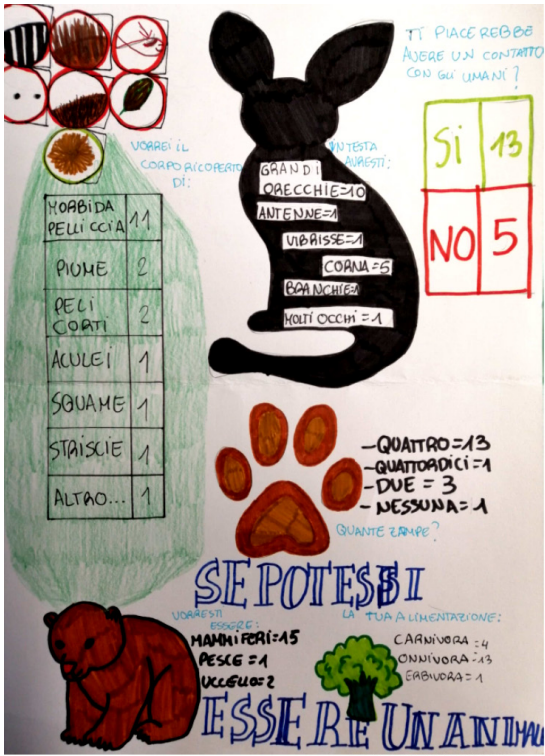 TI PIACEREBBE
AVERE UN CONTATTO
CON GLI UMANI?
SI 13
NO 5
VORREI IL
CORPO RICOPERTO
DI:
MORBIDA
PELLICCIA 11
PIUME 2
PELI
CORTI 2
ACULEI 1
SQUAME 1
STRISCIE 1
ALTRO... 1
IN TESTA
AVRESTI:
GRANDI
ORECCHIE=10
ANTENNE=1
VIBRISSE=1
CORNA=5
BRANCHIE=1
MOLTI OCCHI=1
-QUATTRO=13
-QUATTORDICI=1
-DUE=3
-NESSUNA=1
QUANTE ZAMPE?
SE POTESSI
VORRESTI
ESSERE:
MAMMIFERI=15
PESCE=1
UCCELLO=2
LA TUA ALIMENTAZIONE:
CARNIVORA=4
ONNIVORA=13
ERBIVORA=1
ESSERE UN ANIMALE